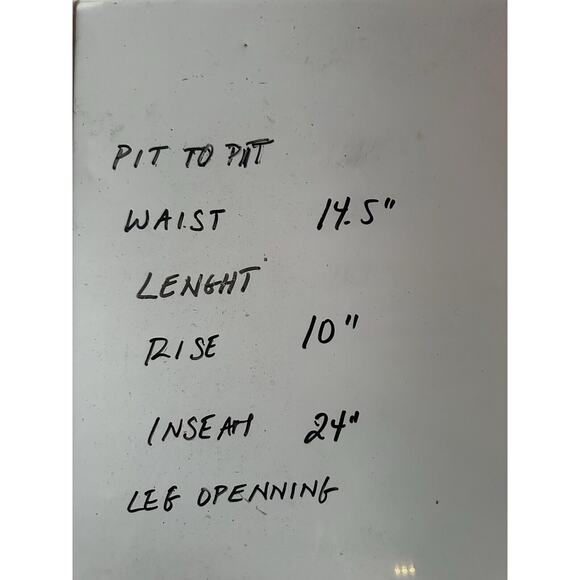 PIT TO PIT
WAIST 14.5"
LENGHT
RISE 10"
INSEAM 24"
LEG OPENNING